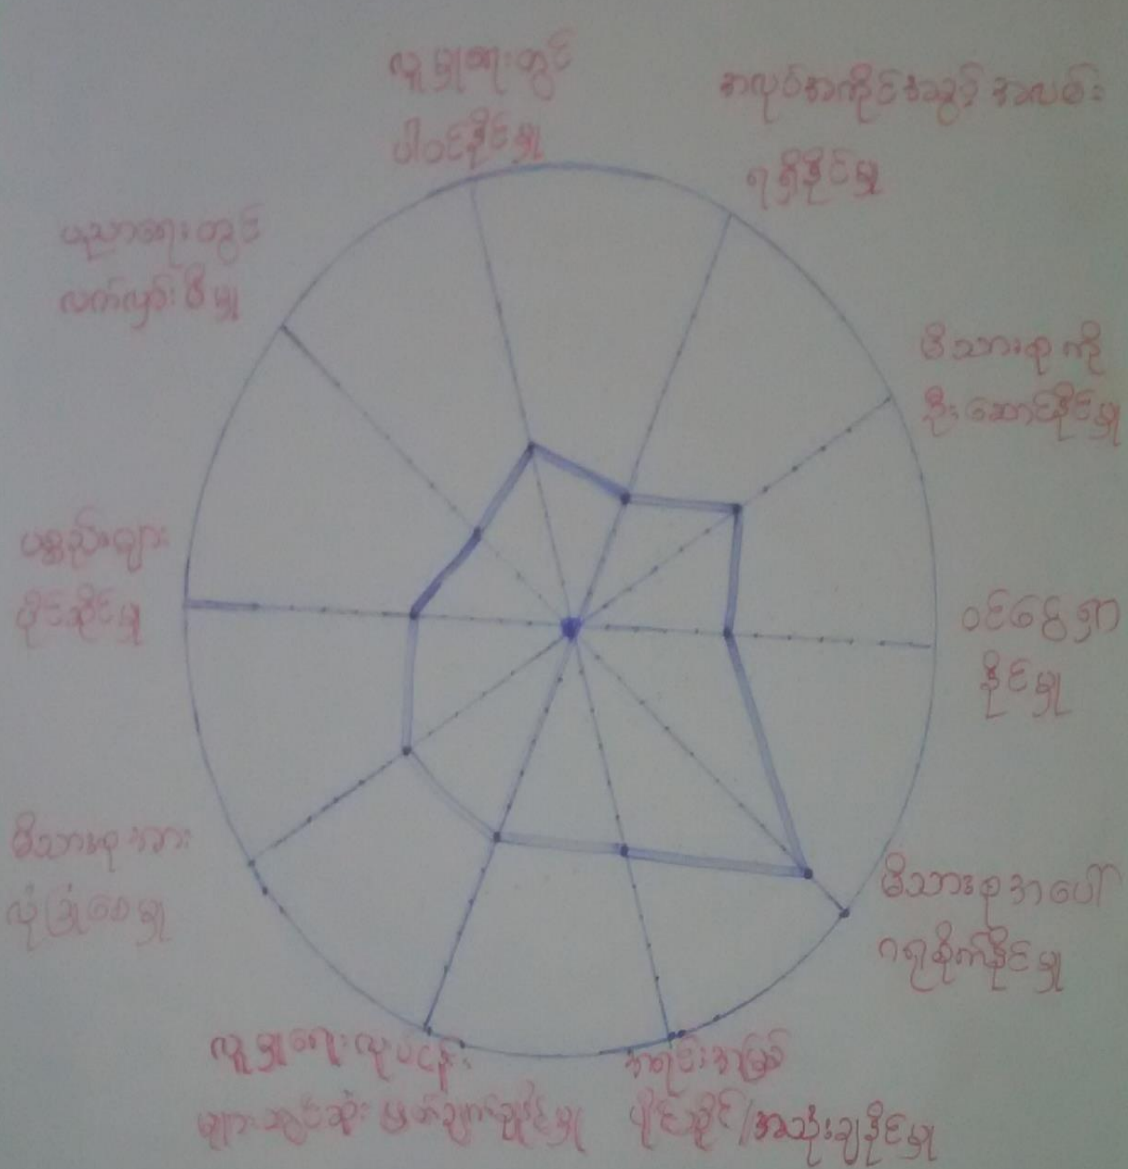 လူမှုရေးတွင်
ပါဝင်နိုင်မှု
အလုပ်အကိုင်အခွင့်အလမ်း
ရရှိနိုင်မှု
မိသားစုကို
ဦးဆောင်နိုင်မှု
ဝင်ငွေရှာ
နိုင်မှု
မိသားစုအပေါ်
ဂရုစိုက်နိုင်မှု
အရင်းအမြစ်
ပိုင်ဆိုင်/အသုံးချနိုင်မှု
လူမှုရေးလုပ်ငန်း
များတွင်ဆုံးဖြတ်ချက်ချနိုင်မှု
မိသားစုအား
လုံခြုံစေမှု
ပစ္စည်းများ
ပိုင်ဆိုင်မှု
ပညာရေးတွင်
လက်လှမ်းမီမှု